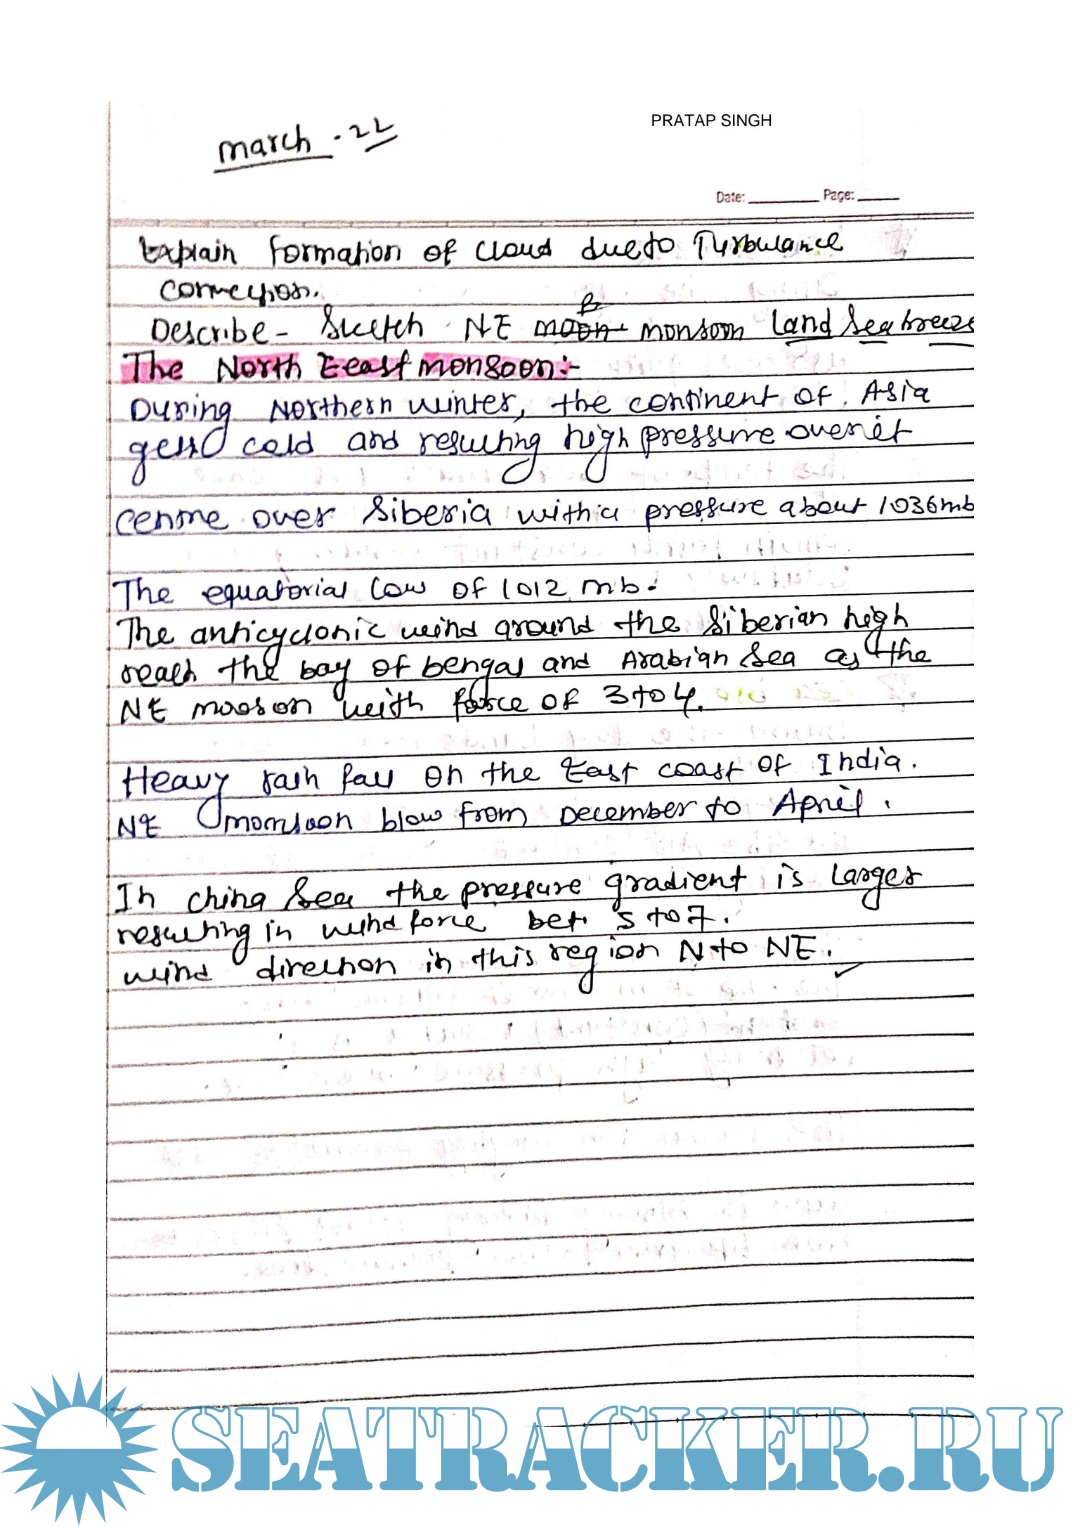 PRATAP SINGH
march - 22
Date: Page:
Explain formation of cloud due to Turbulance
convection.
Describe - Sketch NE monsoon land Sea breeze
The North Eeast monsoon:-
During Northern winter, the continent of Asia
gets cold and resulting high pressure over it
centre over Siberia with a pressure about 1036mb
The equatorial low of 1012 mb.
The anticyclonic wind around the Siberian high
reach the bay of bengal and Arabian Sea as the
NE mooson with force of 3 to 4.
Heavy rain fall on the East coast of India.
NE monsoon blow from December to April.
In china Sea the pressure gradient is larger
resulting in wind force bet. 5 to 7.
wind direction in this region N to NE.
SEATRACKER.RU